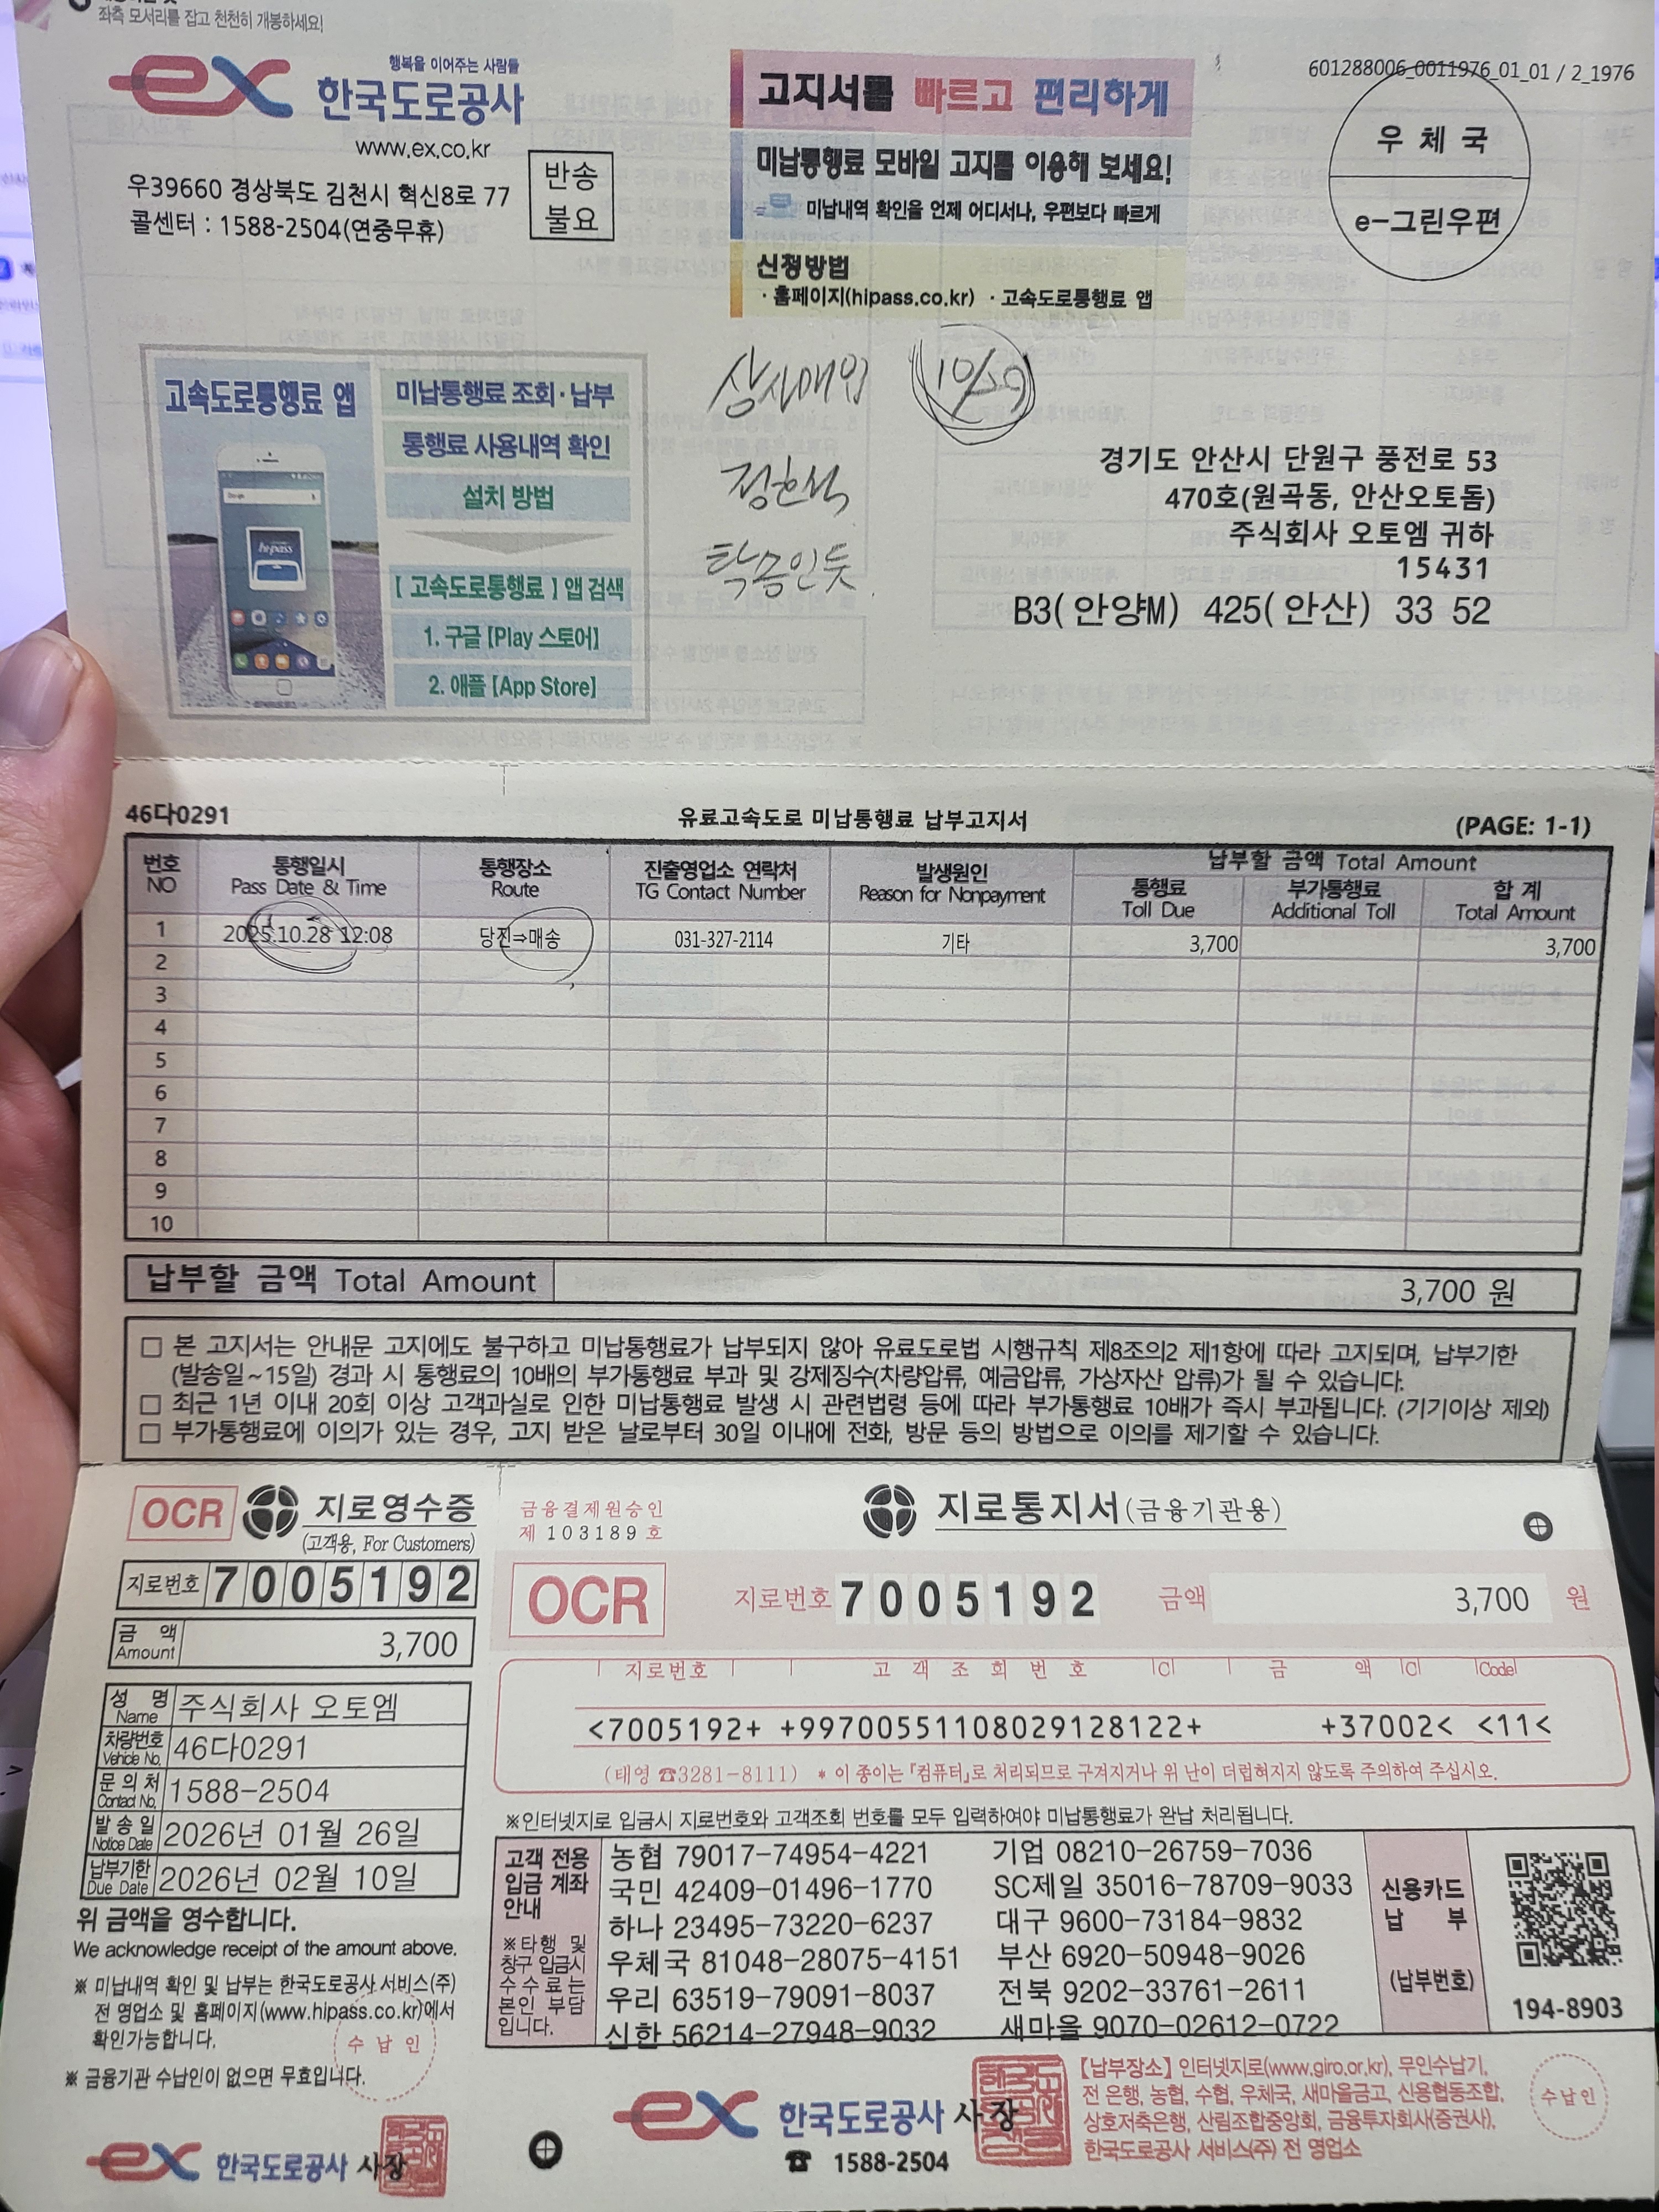 좌측 모서리를 잡고 천천히 개봉하세요!
ex 행복을 이어주는 사람들
한국도로공사
www.ex.co.kr
우39660 경상북도 김천시 혁신8로 77
콜센터 : 1588-2504(연중무휴)
반송
불요
고지서를 빠르고 편리하게
미납통행료 모바일 고지를 이용해 보세요!
미납내역 확인을 언제 어디서나, 우편보다 빠르게
신청방법
· 홈페이지(hipass.co.kr) · 고속도로통행료 앱
601288006_0011976_01_01 / 2_1976
우 체 국
e-그린우편
고속도로통행료 앱
Google
hi-pass
미납통행료 조회·납부
통행료 사용내역 확인
설치 방법
[ 고속도로통행료 ] 앱 검색
1. 구글 [Play 스토어]
2. 애플 [App Store]
상사매입 10/29
정한석
탁송인듯
경기도 안산시 단원구 풍전로 53
470호(원곡동, 안산오토돔)
주식회사 오토엠 귀하
15431
B3(안양M) 425(안산) 33 52
46다0291 유료고속도로 미납통행료 납부고지서 (PAGE: 1-1)
번호 NO 통행일시 Pass Date & Time 통행장소 Route 진출영업소 연락처 TG Contact Number 발생원인 Reason for Nonpayment 납부할 금액 Total Amount
통행료 Toll Due 부가통행료 Additional Toll 합 계 Total Amount
1 2025.10.28 12:08 당진⇒매송 031-327-2114 기타 3,700 3,700
2
3
4
5
6
7
8
9
10
납부할 금액 Total Amount 3,700 원
□ 본 고지서는 안내문 고지에도 불구하고 미납통행료가 납부되지 않아 유료도로법 시행규칙 제8조의2 제1항에 따라 고지되며, 납부기한
(발송일~15일) 경과 시 통행료의 10배의 부가통행료 부과 및 강제징수(차량압류, 예금압류, 가상자산 압류)가 될 수 있습니다.
□ 최근 1년 이내 20회 이상 고객과실로 인한 미납통행료 발생 시 관련법령 등에 따라 부가통행료 10배가 즉시 부과됩니다. (기기이상 제외)
□ 부가통행료에 이의가 있는 경우, 고지 받은 날로부터 30일 이내에 전화, 방문 등의 방법으로 이의를 제기할 수 있습니다.
OCR 지로영수증
(고객용, For Customers)
지로번호 7005192
금 액 Amount 3,700
성 명 Name 주식회사 오토엠
차량번호 Vehicle No. 46다0291
문 의 처 Contact No. 1588-2504
발 송 일 Notice Date 2026년 01월 26일
납부기한 Due Date 2026년 02월 10일
위 금액을 영수합니다.
We acknowledge receipt of the amount above.
※ 미납내역 확인 및 납부는 한국도로공사 서비스(주)
전 영업소 및 홈페이지(www.hipass.co.kr)에서
확인가능합니다.
수 납 인
※ 금융기관 수납인이 없으면 무효입니다.
ex 한국도로공사 사장
금융결제원승인
제 103189 호
지로통지서(금융기관용)
OCR 지로번호 7005192 금액 3,700 원
지로번호 고 객 조 회 번 호 C 금 액 C Code
<7005192+ +99700551108029128122+ +37002< <11<
(태영 ☎3281-8111) * 이 종이는 「컴퓨터」로 처리되므로 구겨지거나 위 난이 더럽혀지지 않도록 주의하여 주십시오.
※인터넷지로 입금시 지로번호와 고객조회 번호를 모두 입력하여야 미납통행료가 완납 처리됩니다.
고객 전용
입금 계좌
안내
※타행 및
창구 입금시
수수료는
본인 부담
입니다.
농협 79017-74954-4221 기업 08210-26759-7036
국민 42409-01496-1770 SC제일 35016-78709-9033
하나 23495-73220-6237 대구 9600-73184-9832
우체국 81048-28075-4151 부산 6920-50948-9026
우리 63519-79091-8037 전북 9202-33761-2611
신한 56214-27948-9032 새마을 9070-02612-0722
신용카드
납 부
(납부번호)
194-8903
ex 한국도로공사 사장
☎ 1588-2504
【납부장소】 인터넷지로(www.giro.or.kr), 무인수납기,
전 은행, 농협, 수협, 우체국, 새마을금고, 신용협동조합,
상호저축은행, 산림조합중앙회, 금융투자회사(증권사),
한국도로공사 서비스(주) 전 영업소
수납인